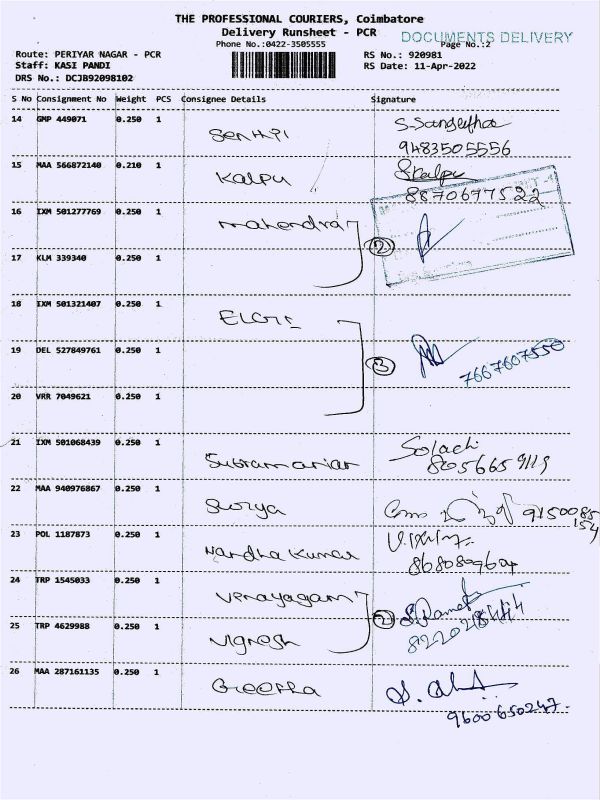 THE PROFESSIONAL COURIERS, Coimbatore
Delivery Runsheet - PCR
DOCUMENTS DELIVERY
Phone No.:0422-3505555
Page No.:2
Route: PERIYAR NAGAR - PCR
RS No.: 920981
Staff: KASI PANDI
RS Date: 11-Apr-2022
DRS No.: DCJB92098102
S No Consignment No Weight PCS Consignee Details Signature
14 GMP 449071 0.250 1 Senthil S. Sangeetha
9483505556
15 MAA 566872140 0.210 1 Kalpu S Kalpu
8870677522
16 IXM 501277769 0.250 1 Mahendra
2
17 KLM 339340 0.250 1
18 IXM 501321407 0.250 1 ELGI
19 DEL 527849761 0.250 1
3 7667607550
20 VRR 7049621 0.250 1
21 IXM 501068439 0.250 1 Subramanian Solachi
8056659119
22 MAA 940976867 0.250 1 Surya 9150085
154
23 POL 1187873 0.250 1 Nandha Kumar
8680809604
24 TRP 1545033 0.250 1 Vinayagam
2
25 TRP 4629988 0.250 1 Vignesh
26 MAA 287161135 0.250 1 Geetha
9600650247.